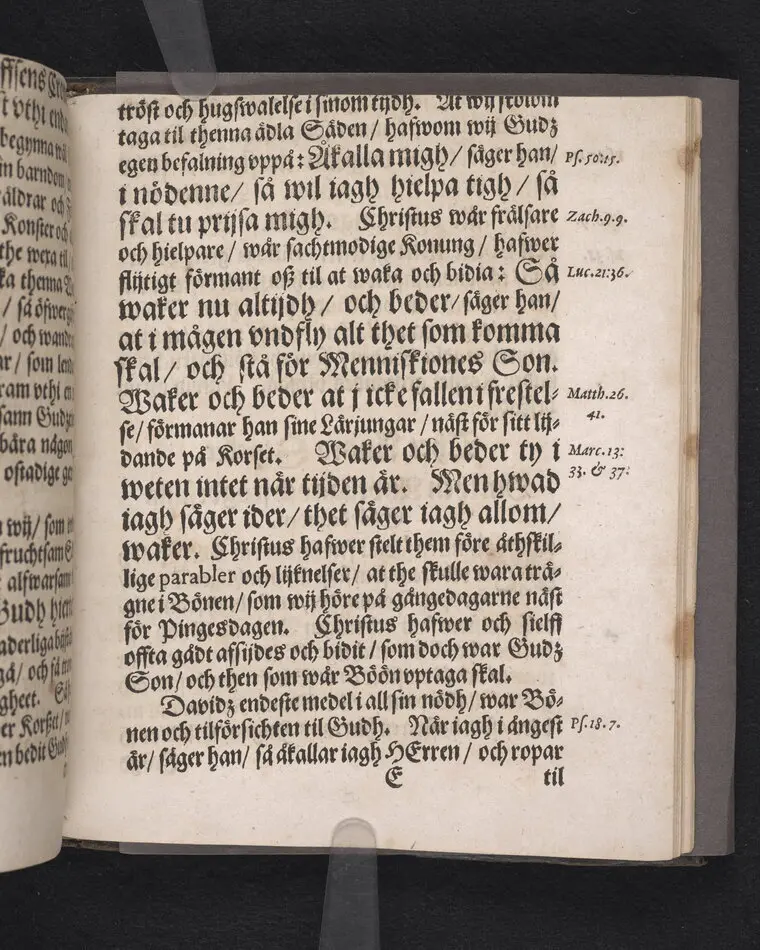 ffsens
t vthi
begynna
in barndom
äldrar och
Konster och
the wexa til
ka thenna
/ så öfwer
/ och wand
ar/ som
ram vthi
sann Gudz
bära någon
ostadige
wij/ som
fruchtsam
alfwarsam
Gudh
aderliga
gå/ och så
gheet.
er Korßet/
en bedit Gudh
tröst och hugswalelse i sinom tijdh. At wij skolom
taga til thenna ädla Säden/ hafwom wij Gudz
egen befalning vppå: Åkalla migh/ säger han/ Ps. 50:15.
i nödenne/ så wil iagh hielpa tigh/ så
skal tu prijsa migh. Christus wår frälsare Zach. 9.9.
och hielpare/ wår sachtmodige Konung/ hafwer
flijtigt förmant oß til at waka och bidia: Så Luc. 21:36.
waker nu altijdh/ och beder/ säger han/
at i mågen vndfly alt thet som komma
skal/ och stå för Menniskiones Son.
Waker och beder at j icke fallen i frestel- Matth. 26.
se/ förmanar han sine Lärjungar/ näst för sitt lij- 41.
dande på Korset. Waker och beder ty i Marc. 13:
weten intet när tijden är. Men hwad 33. & 37:
iagh säger ider/ thet säger iagh allom/
waker. Christus hafwer stelt them före åthskil-
lige parabler och lijknelser/ at the skulle wara trä-
gne i Bönen/ som wij höre på gångedagarne näst
för Pingesdagen. Christus hafwer och sielff
offta gådt afsijdes och bidit/ som doch war Gudz
Son/ och then som wår Böön vptaga skal.
Davidz endeste medel i all sin nödh/ war Bö-
nen och tilförsichten til Gudh. När iagh i ångest Ps. 18. 7.
är/ säger han/ så åkallar iagh HErren/ och ropar
E til